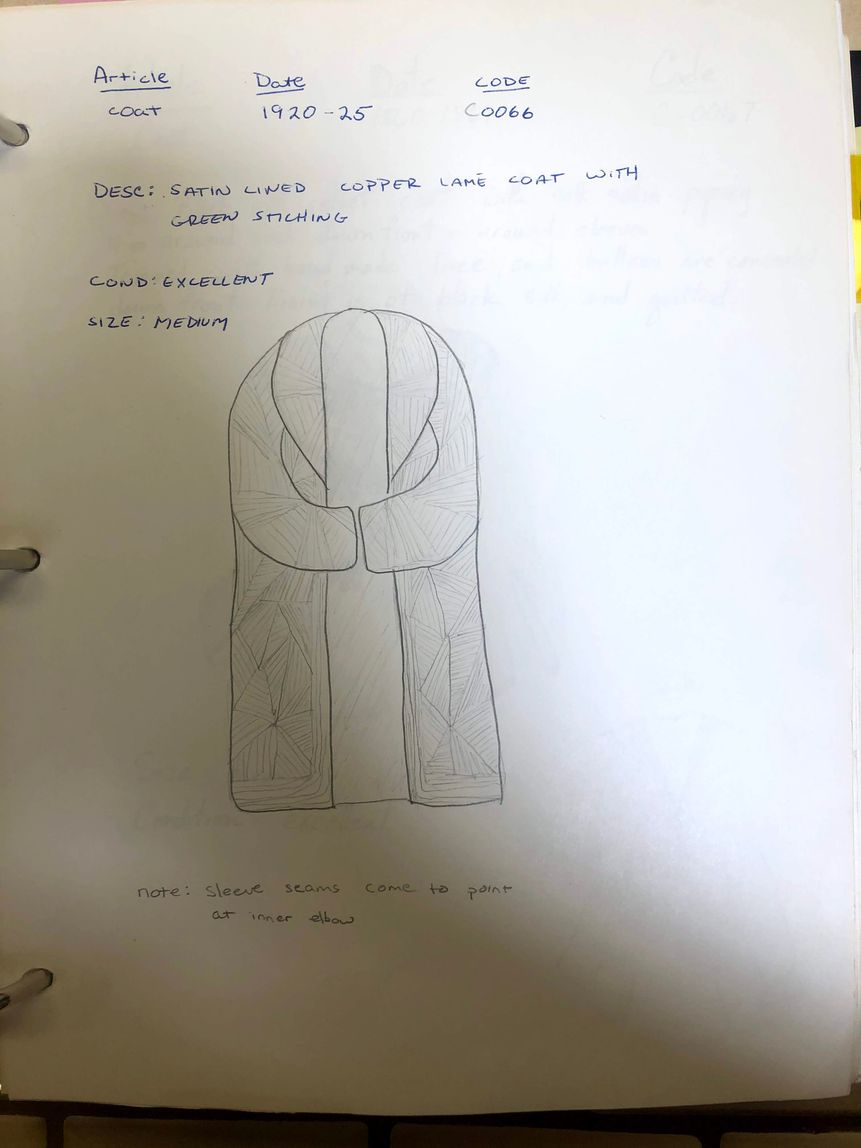 Article Date CODE
coat 1920-25 C0066
DESC: SATIN LINED COPPER LAMÉ COAT WITH
GREEN STICHING
COND: EXCELLENT
SIZE: MEDIUM
note: Sleeve seams come to point
at inner elbow